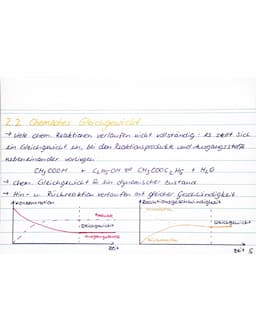 2.2 Chemisches Gleichgewicht
→ Viele chem. Reaktionen verlaufen nicht vollständig: es stellt sich
ein Gleichgewicht ein, bei den Reaktionsprodukte und Ausgangsstoffe
nebeneinander vorliegen
CH₃COOH + C₂H₅OH ⇌ CH₃COOC₂H₅ + H₂O
→ Chem. Gleichgewicht ist ein dynamischer Zustand
→ Hin- u. Rückreaktion verlaufen mit gleicher Geschwindigkeit
Konzentration
Produkte
Gleichgewicht
Ausgangsstoffe
Zeit
Reaktionsgeschwindigkeit
Hinreaktion
Gleichgewicht
Rückreaktion
Zeit